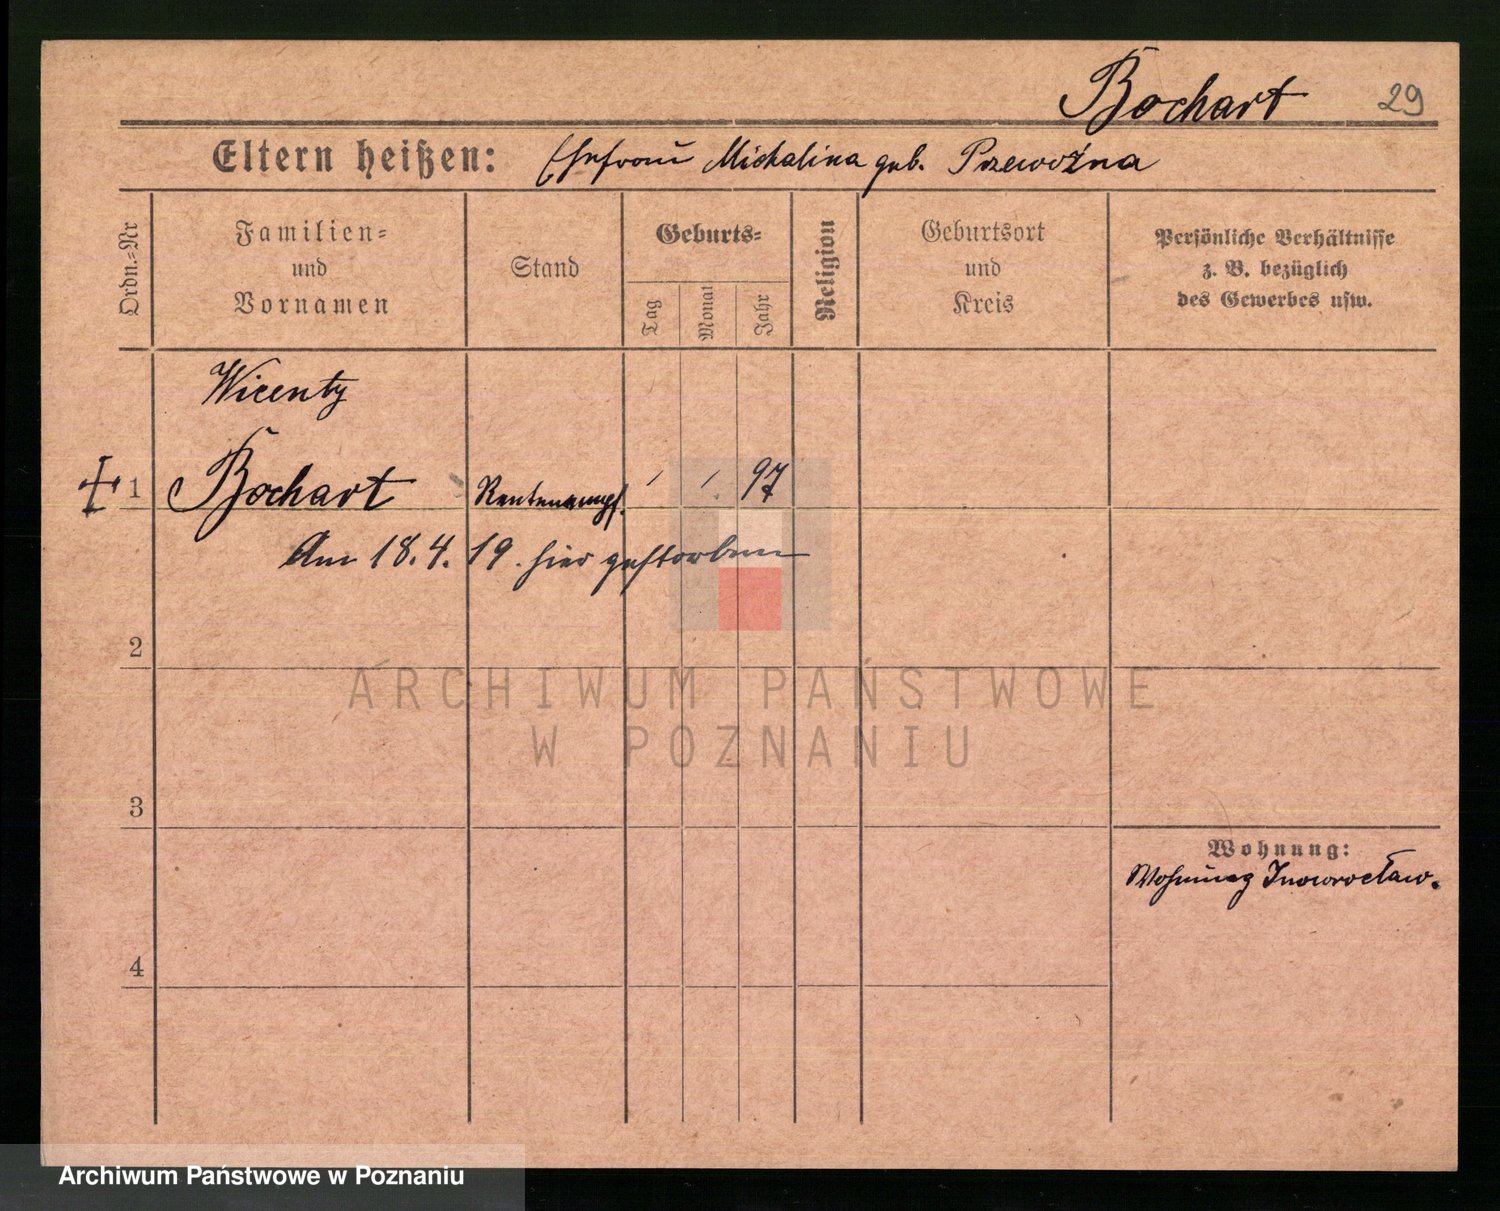 Bochart 29
Eltern heißen: Ehefrau Michalina geb. Przewoźna
Ordn.=Nr
Familien=
und
Vornamen
Stand
Geburts=
Tag
Monat
Jahr
Religion
Geburtsort
und
Kreis
Persönliche Verhältnisse
z. B. bezüglich
des Gewerbes usw.
Wicenty
1 Bochart Rentenempf. / / 97
Am 18.4.19. hier gestorben
2
3
4
Wohnung:
Wohnung Inowrocław.
ARCHIWUM PAŃSTWOWE
W POZNANIU
Archiwum Państwowe w Poznaniu